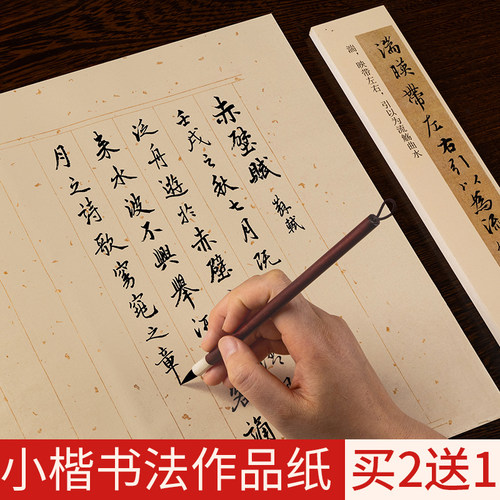 湍暎帶左右引以為流
湍，映带左右，引以为流觞曲水
赤壁賦
壬戌之秋七月既
泛舟遊於赤壁
来水波不興舉酒
誦
月之詩歌窈窕之章
小楷书法作品纸
买2送1